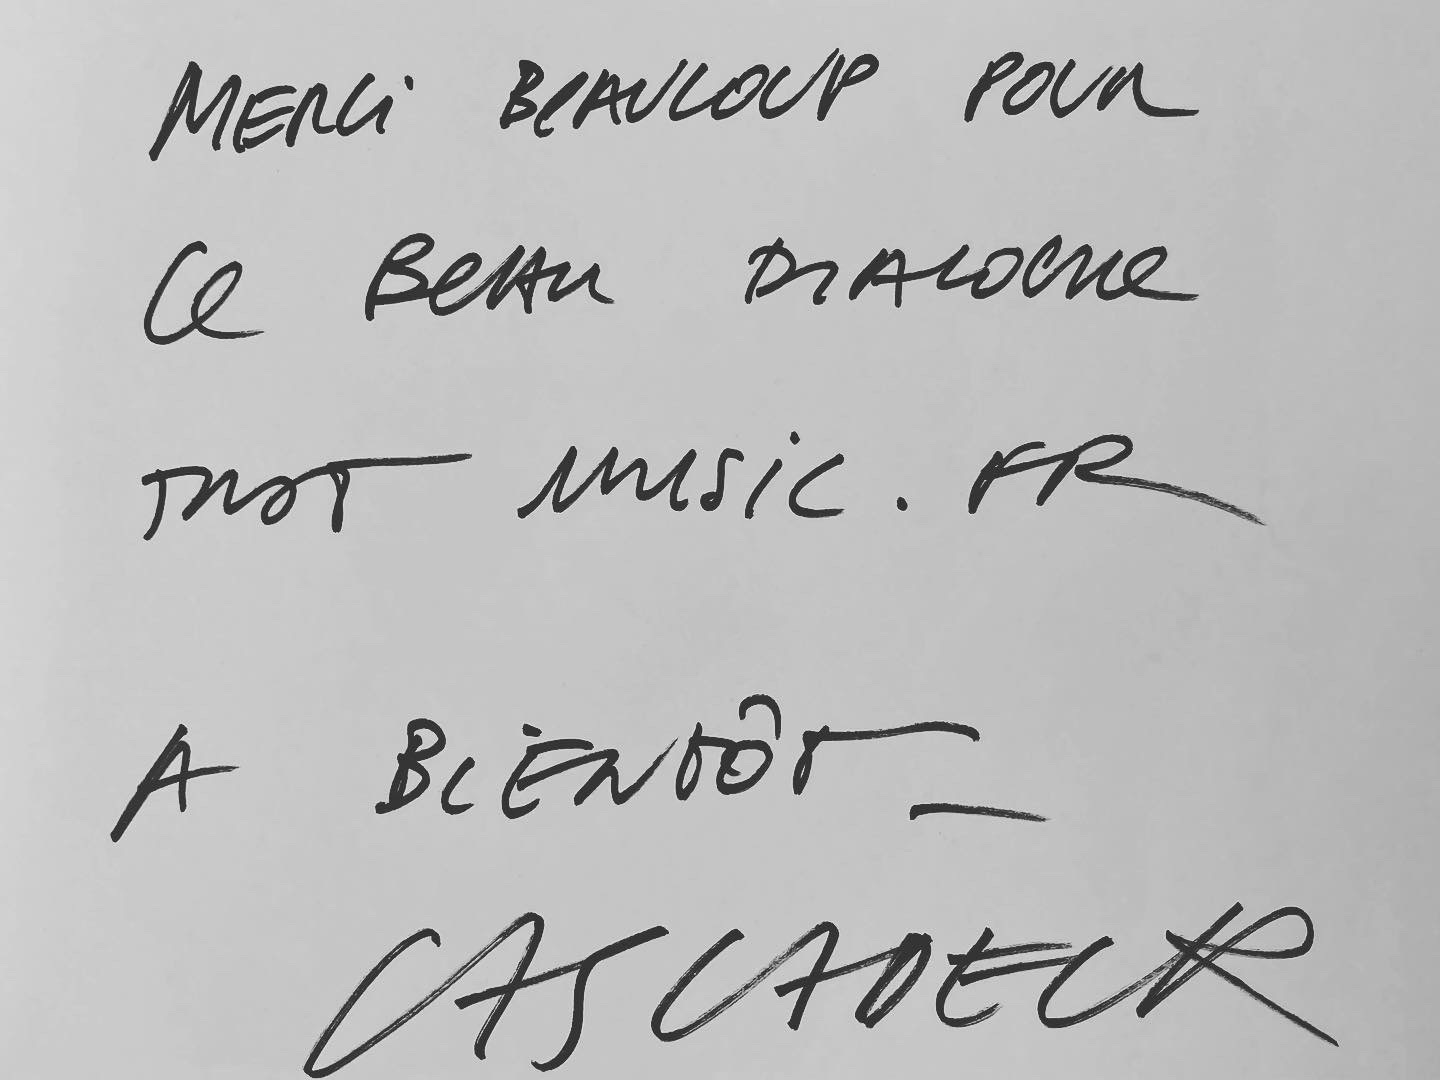 MERCi BEAUCOUP POUR
Ce BEAU DIALOGUE
JUST MUSIC.FR
A BIENTÔT_
CASCADEUR